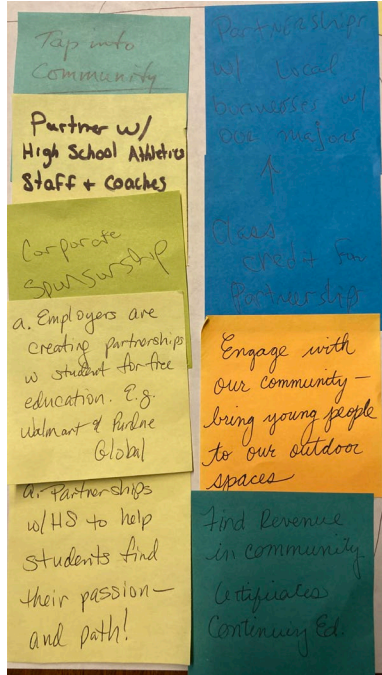 Tap into
Community
Partner w/
High School Athletics
Staff + Coaches
Corporate
Sponsorship
a. Employers are
creating partnerships
w student for free
education. E.g.
Walmart & Purdue
Global
a. Partnerships
w/HS to help
students find
their passion—
and path!
Partnerships
w/ Local
businesses w/
our majors
↑
Class
credit for
Partnership
Engage with
our community—
bring young people
to our outdoor
spaces
Find Revenue
in community
Certificates
Continuing Ed.